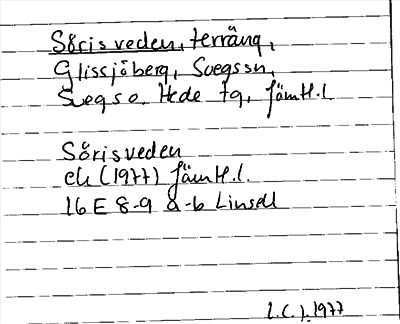 Sörisveden, terräng,
Glissjöberg, Svegssn,
Svegs o. Hede tg, Jämtl. l.
Sörisveden
ek (1977) Jämtl. l.
16 E 8-9 a-b Linsell
1977